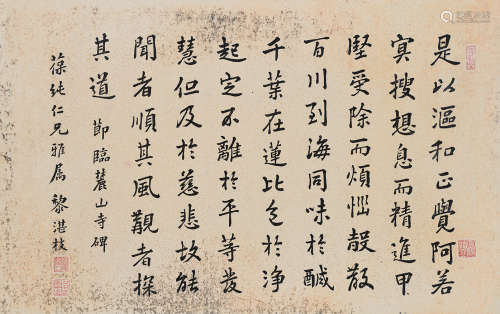 是以漚和正覺阿若
冥搜想息而精進甲
堅受除而煩惱殼散
百川到海同味於醎
千葉在蓮比色於淨
起定不離於平等發
慧但及於慈悲故能
聞者順其風觀者探
其道 節臨麓山寺碑
葆純仁兄雅屬 黎湛枝